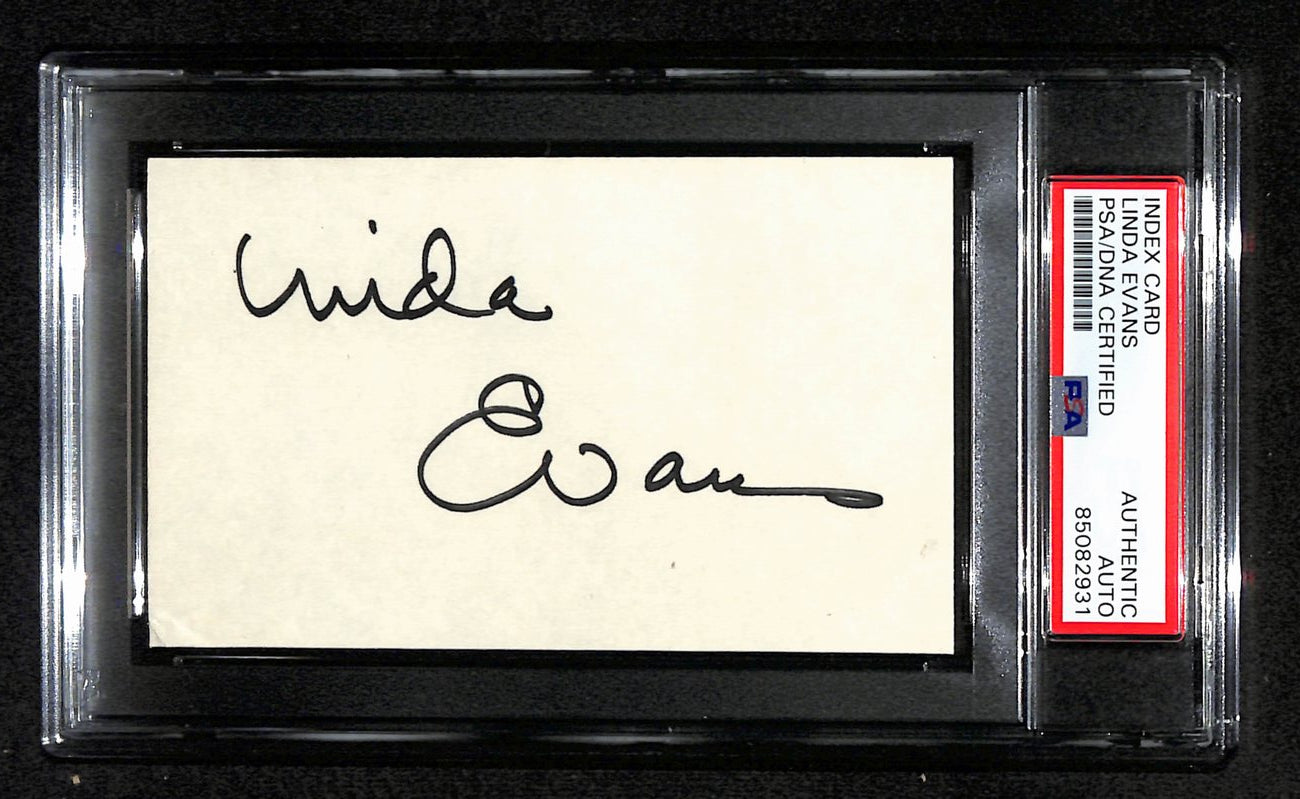 Linda
Evans
INDEX CARD
LINDA EVANS
PSA/DNA CERTIFIED
AUTHENTIC
AUTO
85082931
PSA